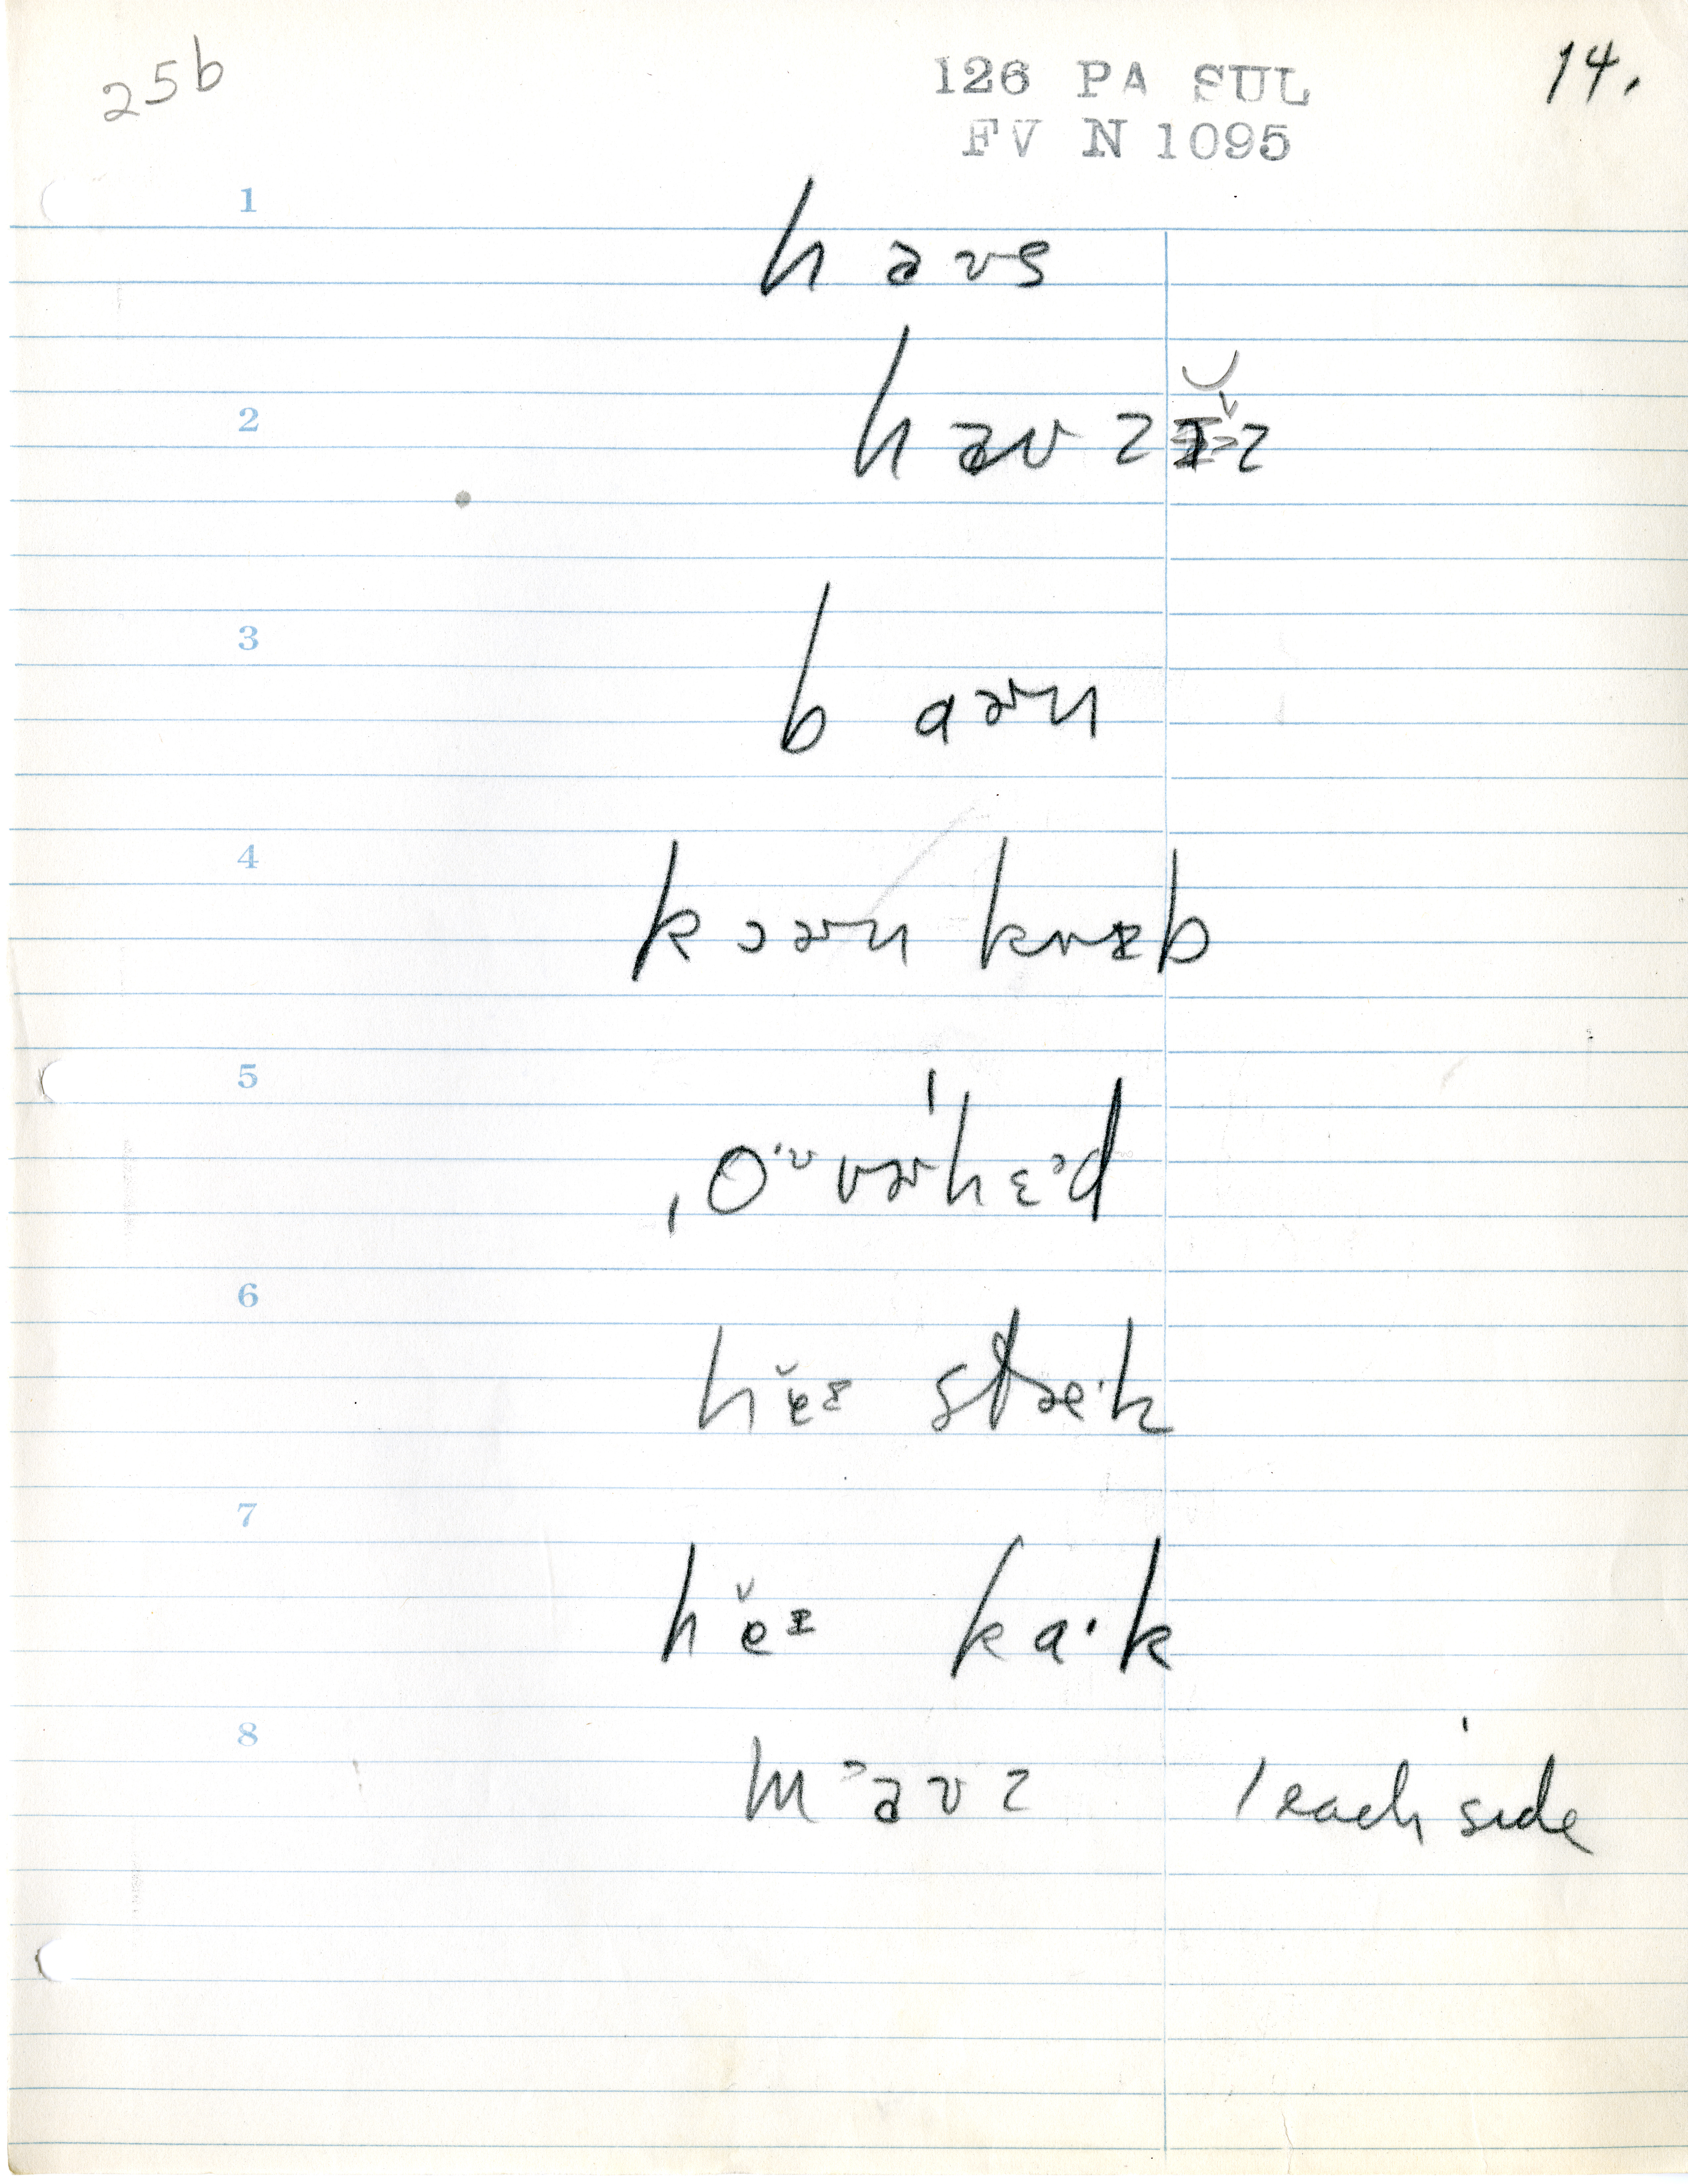 25b
126 PA SUL
FV N 1095
14.
1
haʊs
2
haʊzɪ̆z
3
bɑɚn
4
kɔɚn krɪb
5
ˌo·ᶷvɚˈhɛᵊd
6
hĕɪ stæ·k
7
hĕɪ kɑ·k
8
mᵊaʊz 1 each side